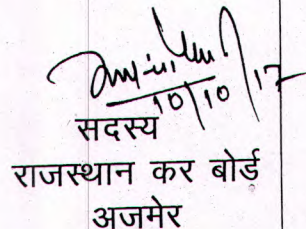 10/10/17
सदस्य
राजस्थान कर बोर्ड
अजमेर